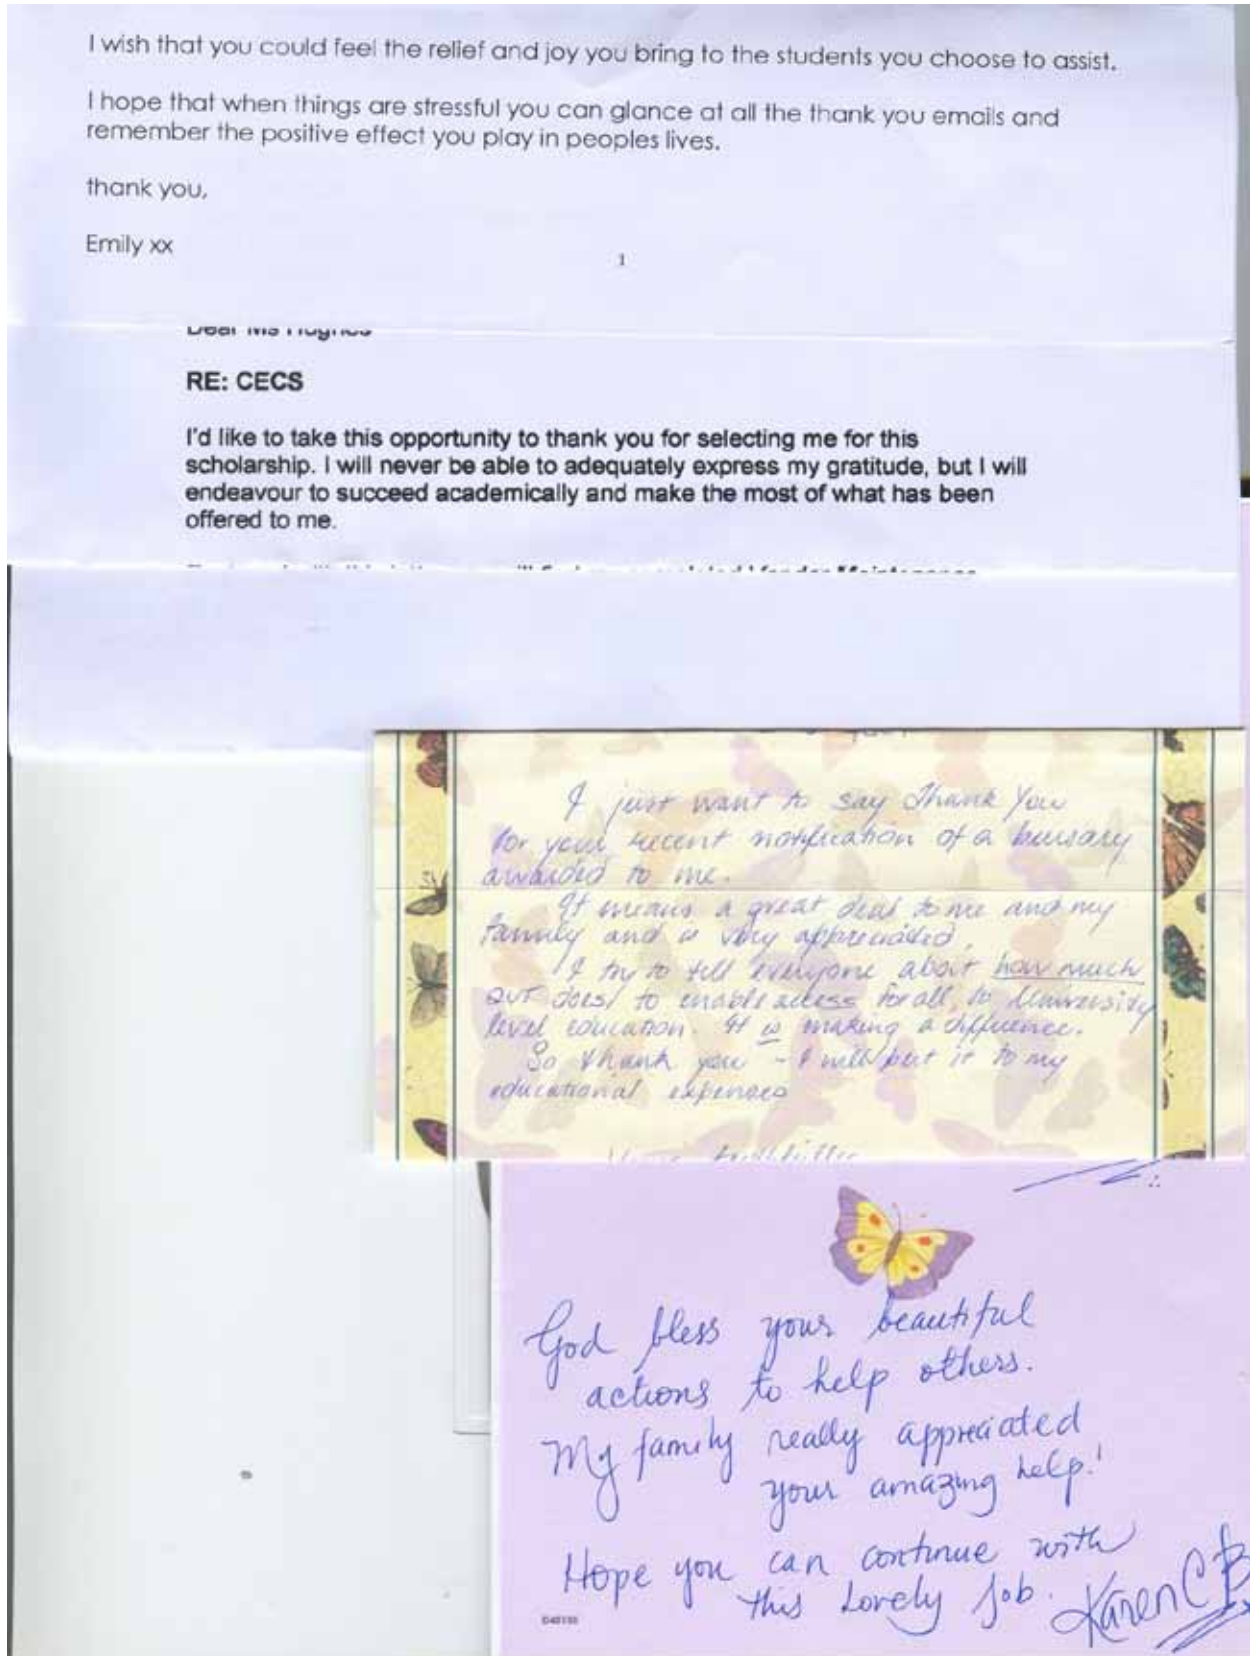 I wish that you could feel the relief and joy you bring to the students you choose to assist.
I hope that when things are stressful you can glance at all the thank you emails and
remember the positive effect you play in peoples lives.
thank you,
Emily xx
1
Dear Ms Hughes
RE: CECS
I'd like to take this opportunity to thank you for selecting me for this
scholarship. I will never be able to adequately express my gratitude, but I will
endeavour to succeed academically and make the most of what has been
offered to me.
I just want to say Thank You
for your recent notification of a bursary
awarded to me.
It means a great deal to me and my
family and is very appreciated.
I try to tell everyone about how much
QUT does to enable access for all, to University
level education. It is making a difference.
So thank you - I will put it to my
educational expenses
God bless your beautiful
actions to help others.
My family really appreciated
your amazing help!
Hope you can continue with
this Lovely Job. Karen C B